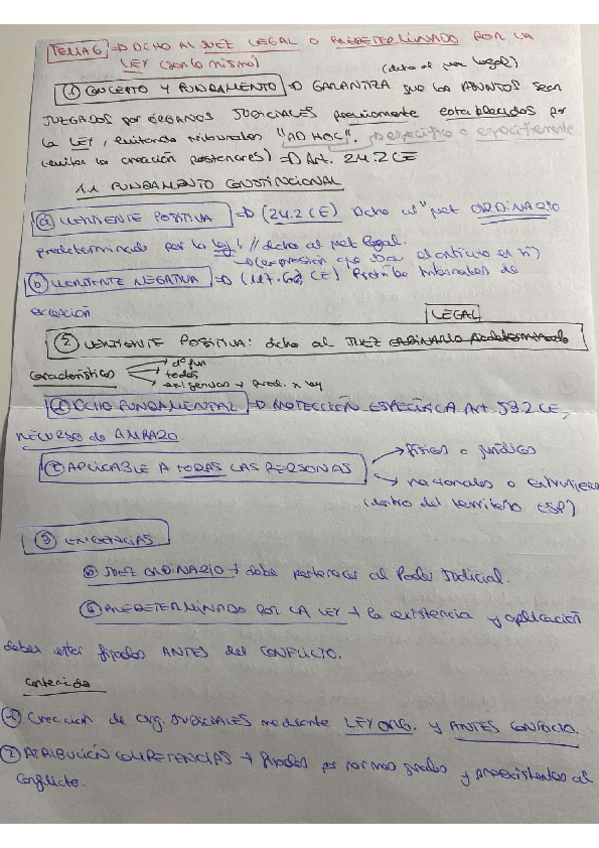 TEMA 6 => DCHO AL JUEZ LEGAL O PREDETERMINADO POR LA
LEY (son lo mismo)
(dcho al juez legal)
① CONCEPTO Y FUNDAMENTO => GARANTIZA que los ASUNTOS sean
JUZGADOS por ÓRGANOS JUDICIALES previamente establecidos por
la LEY, evitando tribunales "AD HOC". Específico o específicamente
(evitar la creación posteriores) => Art. 24.2 CE
1.1 FUNDAMENTO CONSTITUCIONAL
ⓐ VERTIENTE POSITIVA => (24.2 CE) Dcho al "juez ORDINARIO
predeterminado por la ley" // dcho al juez legal.
(expresión que usa el artículo en sí)
ⓑ VERTIENTE NEGATIVA => (117.6 CE) Prohíbe tribunales de
excepción
LEGAL
② VERTIENTE POSITIVA: dcho al JUEZ ORDINARIO predeterminado
Características → dº fun
→ todos
→ exigencias → pred. x ley
① DCHO FUNDAMENTAL => PROTECCIÓN ESPECÍFICA Art. 53.2 CE,
RECURSO de AMPARO
② APLICABLE A TODAS LAS PERSONAS → físicas o jurídicas
→ nacionales o extranjeras
(dentro del territorio ESP)
③ EXIGENCIAS
ⓐ JUEZ ORDINARIO → debe pertenecer al Poder Judicial.
ⓑ PREDETERMINADO POR LA LEY → la existencia y aplicación
deben estar fijados ANTES del CONFLICTO.
Contenido
① Creación de órg. JUDICIALES mediante LEY ORG. y ANTES CONFLICTO.
② ATRIBUCIÓN COMPETENCIAS → fijadas por normas grales y preexistentes al
conflicto.